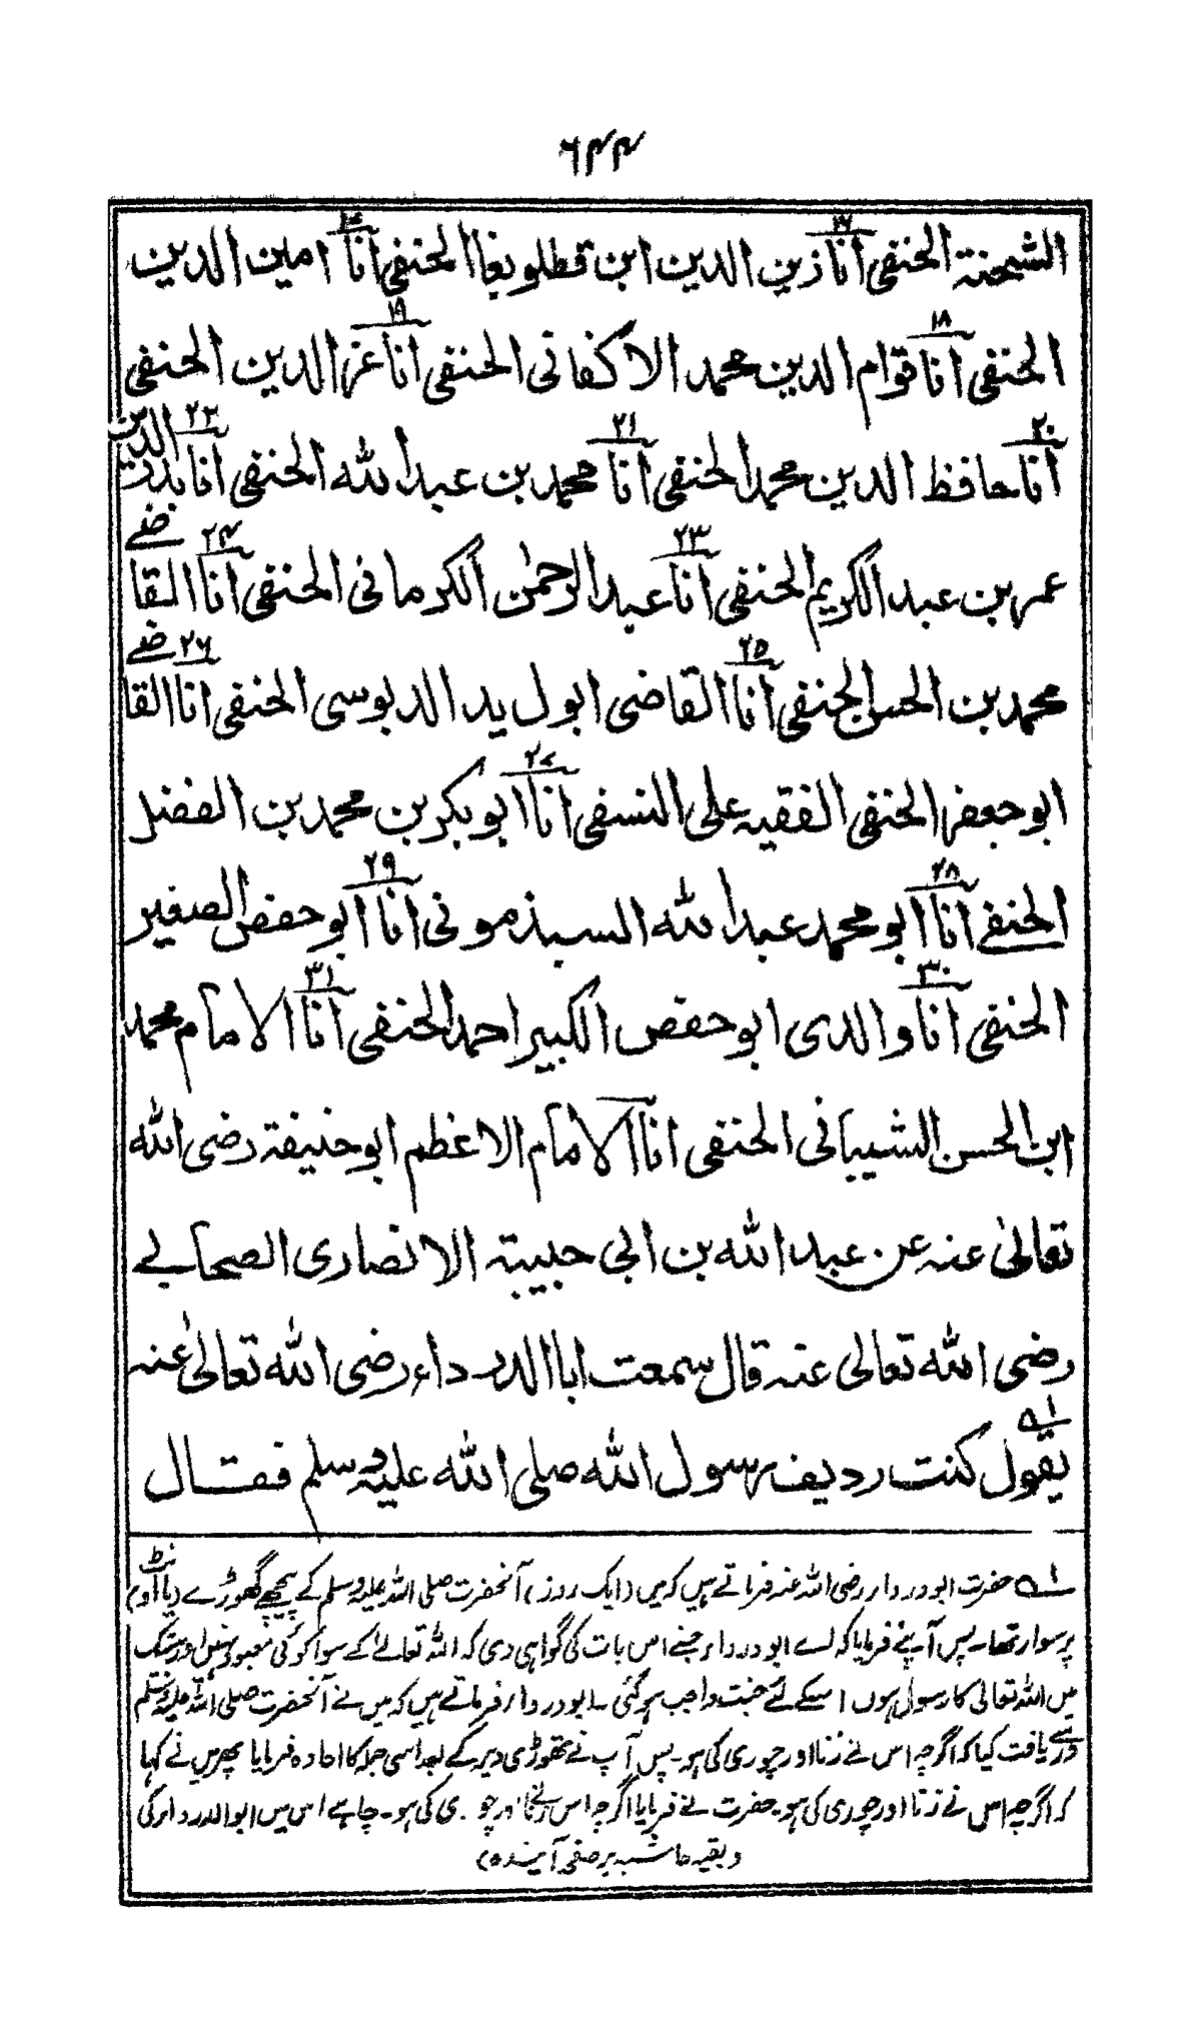 ۶۴۴
الشحنة الحنفی انا زین الدین ابن قطلوبغا الحنفی انا امین الدین
الحنفی انا ۱۸ قوام الدین محمد الاکفانی الحنفی انا ۱۹ عز الدین الحنفی
۲۰ انا حافظ الدین محمد الحنفی ۲۱ انا محمد بن عبد الله الحنفی ۲۲ انا بدر الدین
عمر بن عبد الکریم الحنفی ۲۳ انا عبد الرحمٰن الکرمانی الحنفی ۲۴ انا القاضے
محمد بن الحسن الحنفی ۲۵ انا القاضی ابو ل ید الدبوسی الحنفی ۲۶ انا القاضے
ابو جعفر الحنفی الفقیه علی النسفی ۲۷ انا ابو بکر بن محمد بن الفضل
الحنفے ۲۸ انا ابو محمد عبد الله السبذمونی ۲۹ انا ابو حفص الصغیر
الحنفی ۳۰ انا والدی ابو حفص الکبیر احمد الحنفی ۳۱ انا الامام محمد
ابن الحسن الشیبانی الحنفی انا الامام الاعظم ابو حنیفة رضی الله
تعالیٰ عنہ عن عبد الله بن ابی حبیبة الانصاری الصحابے
رضی الله تعالی عنہ قال سمعت ابا الدرداء رضی الله تعالیٰ عنہ
یقول ۱؎ کنت ردیف رسول الله صلی الله علیہ وسلم فقال
۱؎ حضرت ابودرداء رضی اللہ عنہ فرماتے ہیں کہ میں (ایک روز) آنحضرت صلی اللہ علیہ وسلم کے پیچھے گھوڑے (یا اونٹ)
پر سوار تھا۔ پس آپنے فرمایا کہ اے ابودرداء جسنے اس بات کی گواہی دی کہ اللہ تعالےٰ کے سوا کوئی معبود نہیں اور بیشک
میں اللہ تعالی کا رسول ہوں اسکے لئے جنت واجب ہوگئی۔ ابودرداء فرماتے ہیں کہ میں نے آنحضرت صلی اللہ علیہ وسلم
سے دریافت کیا کہ اگرچہ اس نے زنا اور چوری کی ہو۔ پس آپ نے تھوڑی دیر کے بعد اسی جملہ کا اعادہ فرمایا پھر میں نے کہا
کہ اگرچہ اس نے زنا اور چوری کی ہو۔ حضرت نے فرمایا اگرچہ اس نے زنا اور چوری کی ہو۔ چاہے اس میں ابوالدرداء کی
(بقیہ حاشیہ بر صفحہ آیندہ)